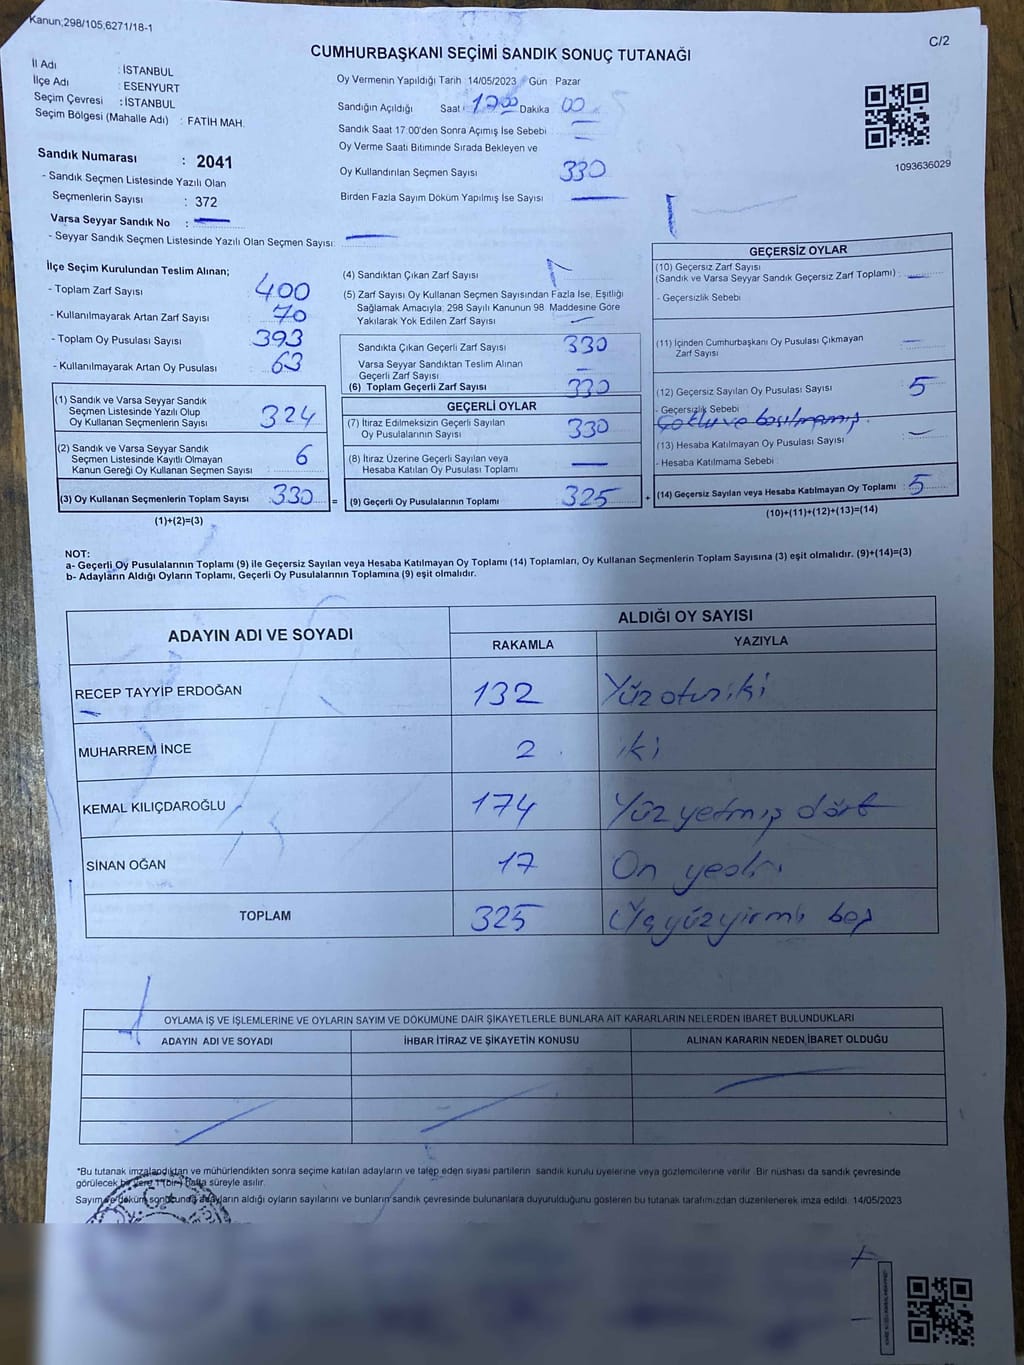 Kanun,298/105,6271/18-1
C/2
CUMHURBAŞKANI SEÇİMİ SANDIK SONUÇ TUTANAĞI
İl Adı : İSTANBUL
İlçe Adı : ESENYURT
Seçim Çevresi : İSTANBUL
Seçim Bölgesi (Mahalle Adı) : FATİH MAH.
Sandık Numarası : 2041
- Sandık Seçmen Listesinde Yazılı Olan
Seçmenlerin Sayısı : 372
Varsa Seyyar Sandık No :
- Seyyar Sandık Seçmen Listesinde Yazılı Olan Seçmen Sayısı:
Oy Vermenin Yapıldığı Tarih : 14/05/2023 Gün : Pazar
Sandığın Açıldığı Saat : 17 00 Dakika 00
Sandık Saat 17:00'den Sonra Açımış İse Sebebi
Oy Verme Saati Bitiminde Sırada Bekleyen ve
Oy Kullandırılan Seçmen Sayısı 330
Birden Fazla Sayım Döküm Yapılmış İse Sayısı
1093636029
İlçe Seçim Kurulundan Teslim Alınan;
- Toplam Zarf Sayısı 400
- Kullanılmayarak Artan Zarf Sayısı 70
- Toplam Oy Pusulası Sayısı 393
- Kullanılmayarak Artan Oy Pusulası 63
(1) Sandık ve Varsa Seyyar Sandık
Seçmen Listesinde Yazılı Olup
Oy Kullanan Seçmenlerin Sayısı 324
(2) Sandık ve Varsa Seyyar Sandık
Seçmen Listesinde Kayıtlı Olmayan
Kanun Gereği Oy Kullanan Seçmen Sayısı 6
(3) Oy Kullanan Seçmenlerin Toplam Sayısı 330 =
(1)+(2)=(3)
(4) Sandıktan Çıkan Zarf Sayısı
(5) Zarf Sayısı Oy Kullanan Seçmen Sayısından Fazla İse, Eşitliği
Sağlamak Amacıyla; 298 Sayılı Kanunun 98. Maddesine Göre
Yakılarak Yok Edilen Zarf Sayısı
Sandıkta Çıkan Geçerli Zarf Sayısı 330
Varsa Seyyar Sandıktan Teslim Alınan
Geçerli Zarf Sayısı
(6) Toplam Geçerli Zarf Sayısı 330
GEÇERLİ OYLAR
(7) İtiraz Edilmeksizin Geçerli Sayılan
Oy Pusulalarının Sayısı 330
(8) İtiraz Üzerine Geçerli Sayılan veya
Hesaba Katılan Oy Pusulası Toplamı
(9) Geçerli Oy Pusulalarının Toplamı 325 +
GEÇERSİZ OYLAR
(10) Geçersiz Zarf Sayısı
(Sandık ve Varsa Seyyar Sandık Geçersiz Zarf Toplamı) :
- Geçersizlik Sebebi
(11) İçinden Cumhurbaşkanı Oy Pusulası Çıkmayan
Zarf Sayısı
(12) Geçersiz Sayılan Oy Pusulası Sayısı 5
- Geçersizlik Sebebi
Çoklu ve basılmamış
(13) Hesaba Katılmayan Oy Pusulası Sayısı
- Hesaba Katılmama Sebebi
(14) Geçersiz Sayılan veya Hesaba Katılmayan Oy Toplamı : 5
(10)+(11)+(12)+(13)=(14)
NOT:
a- Geçerli Oy Pusulalarının Toplamı (9) ile Geçersiz Sayılan veya Hesaba Katılmayan Oy Toplamı (14) Toplamları, Oy Kullanan Seçmenlerin Toplam Sayısına (3) eşit olmalıdır. (9)+(14)=(3)
b- Adayların Aldığı Oyların Toplamı, Geçerli Oy Pusulalarının Toplamına (9) eşit olmalıdır.
ADAYIN ADI VE SOYADI
ALDIĞI OY SAYISI
RAKAMLA YAZIYLA
RECEP TAYYİP ERDOĞAN 132 Yüz otuz iki
MUHARREM İNCE 2 iki
KEMAL KILIÇDAROĞLU 174 Yüz yetmiş dört
SİNAN OĞAN 17 On yedi
TOPLAM 325 Üçyüzyirmi beş
OYLAMA İŞ VE İŞLEMLERİNE VE OYLARIN SAYIM VE DÖKÜMÜNE DAİR ŞİKAYETLERLE BUNLARA AİT KARARLARIN NELERDEN İBARET BULUNDUKLARI
ADAYIN ADI VE SOYADI İHBAR İTİRAZ VE ŞİKAYETİN KONUSU ALINAN KARARIN NEDEN İBARET OLDUĞU
*Bu tutanak imzalandıktan ve mühürlendikten sonra seçime katılan adayların ve talep eden siyasi partilerin sandık kurulu üyelerine veya gözlemcilerine verilir. Bir nüshası da sandık çevresinde
görülecek bir yere 1 (bir) hafta süreyle asılır.
Sayım ve döküm sonucunda adayların aldığı oyların sayılarını ve bunların sandık çevresinde bulunanlara duyurulduğunu gösteren bu tutanak tarafımızdan düzenlenerek imza edildi. 14/05/2023